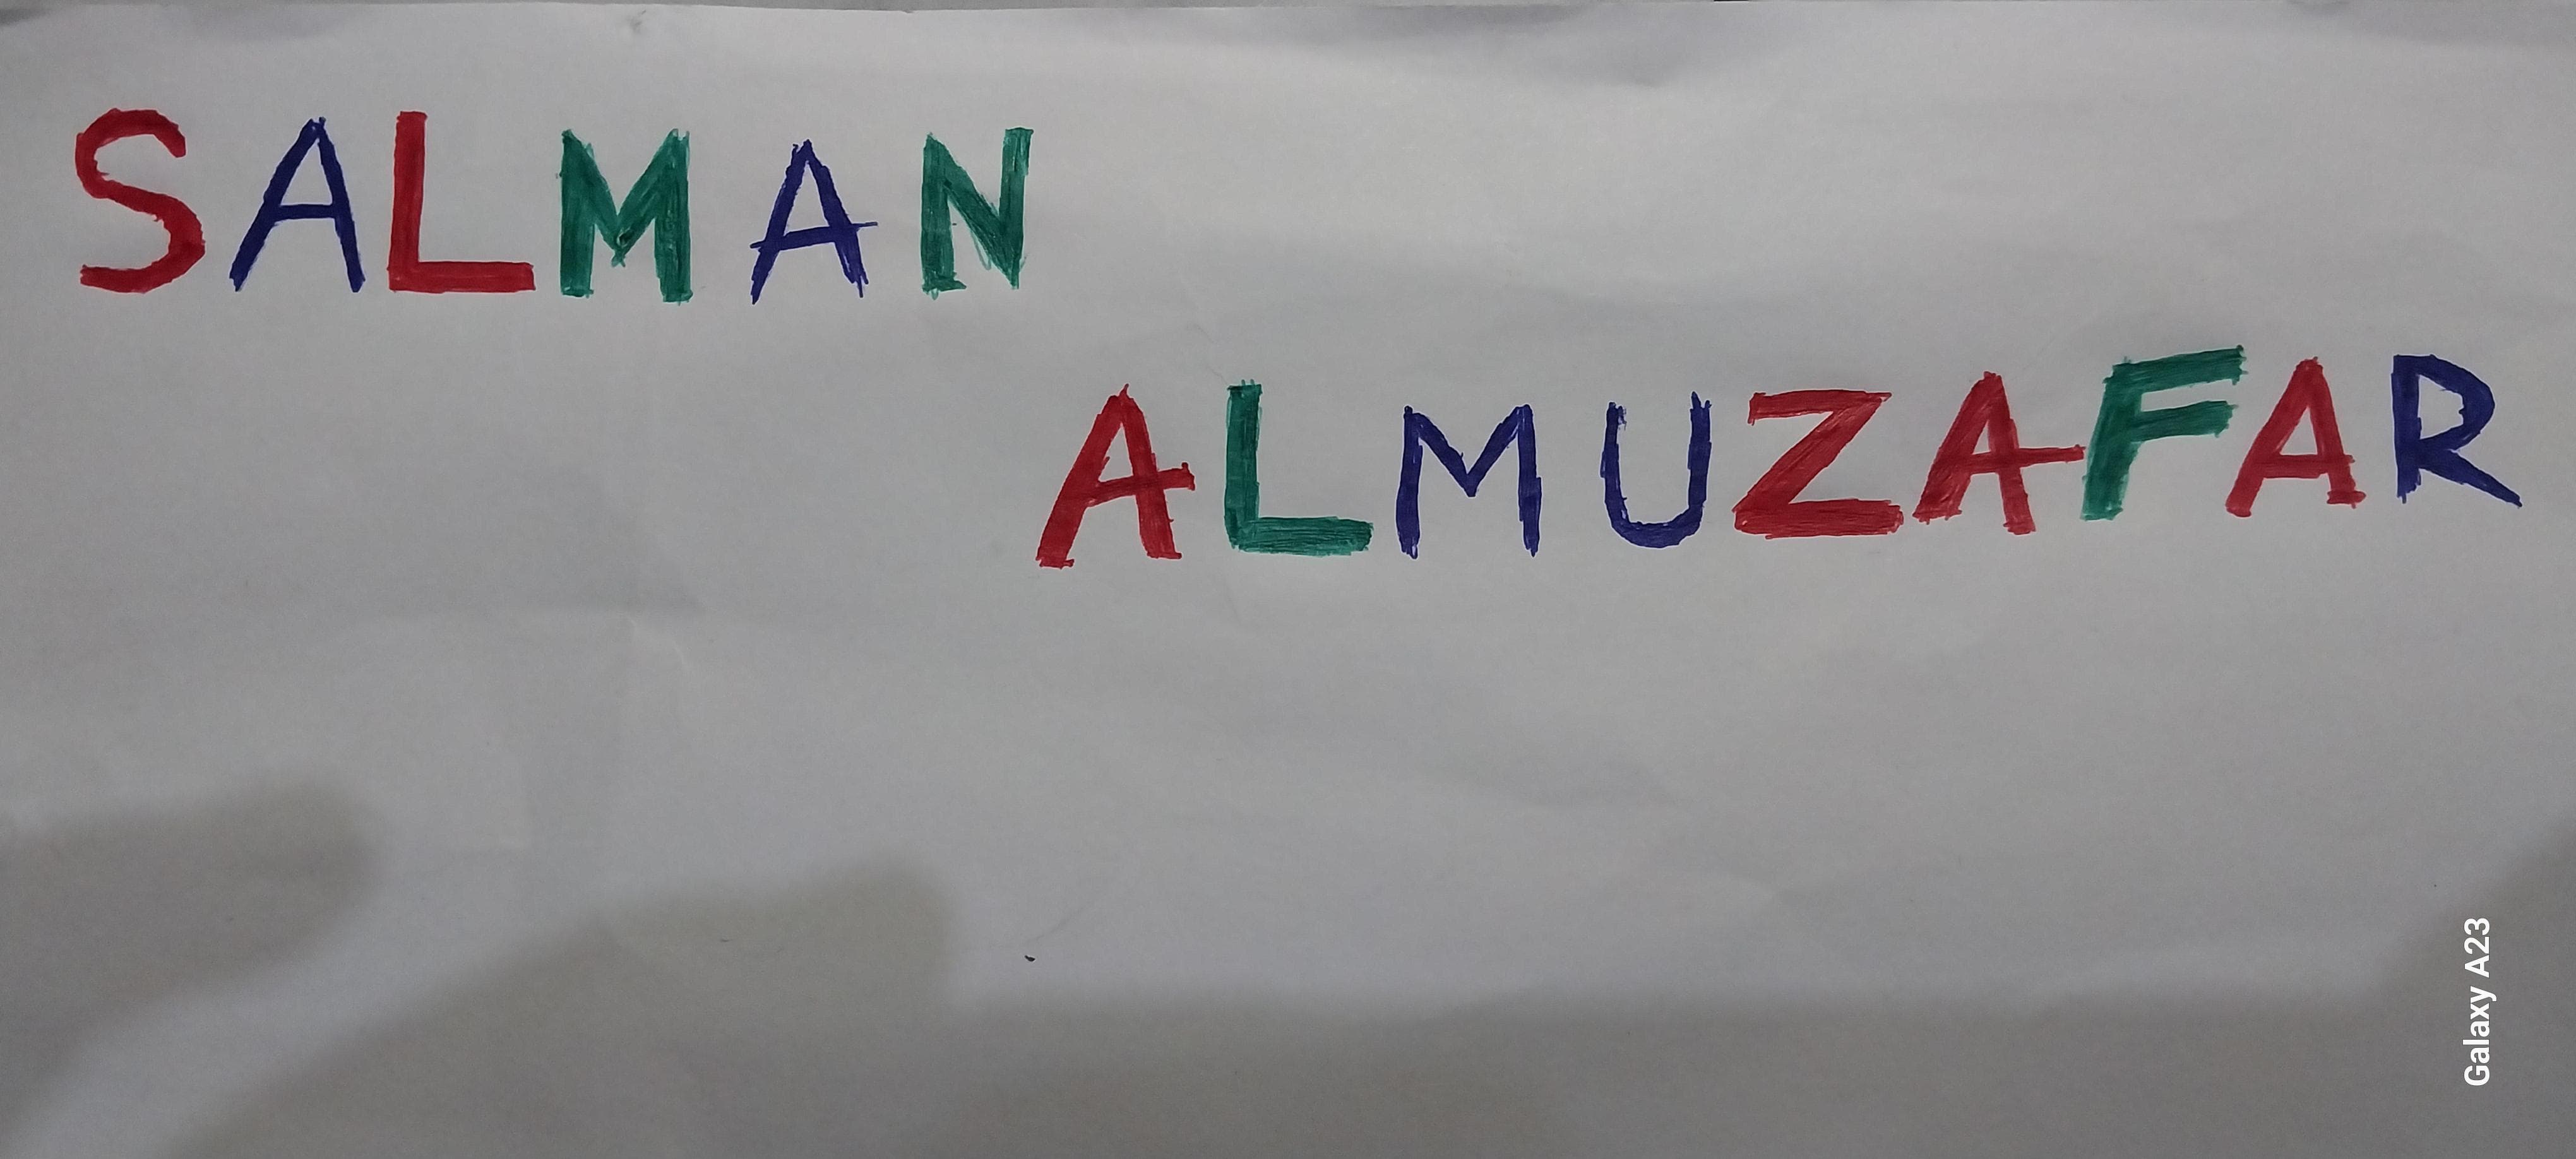 SALMAN
ALMUZAFAR
Galaxy A23